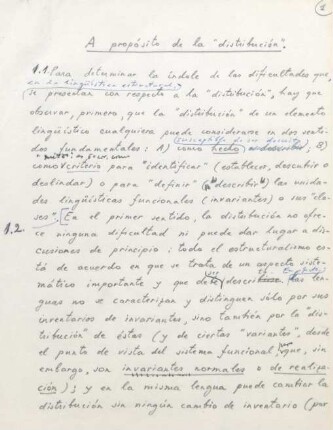 1
A propósito de la "distribución".
1.1. Para determinar la índole de las dificultades que,
en la lingüística estructural,
se presentan con respecto a la "distribución", hay que
observar, primero, que la "distribución" de un elemento
lingüístico cualquiera puede considerarse en dos senti-
dos fundamentales: A) como hecho susceptible de ser descrito, B)
como criterio para "identificar" (establecer, descubrir o
deslindar) o para "definir" ("describir") las unida-
des lingüísticas funcionales (invariantes) o sus "cla-
ses".
1.2. En el primer sentido, la distribución no ofre-
ce ninguna dificultad ni puede dar lugar a dis-
cusiones de principio: todo el estructuralismo es-
tá de acuerdo en que se trata de un aspecto siste-
mático importante y que debe ser descrito. las len-
guas no se caracterizan y distinguen sólo por sus
inventarios de invariantes, sino también por la "dis-
tribución" de éstas (y de ciertas "variantes", desde
el punto de vista del sistema funcional, que, sin
embargo, son invariantes normales o de realiza-
ción); y en la misma lengua puede cambiar la
distribución sin ningún cambio de inventario (por